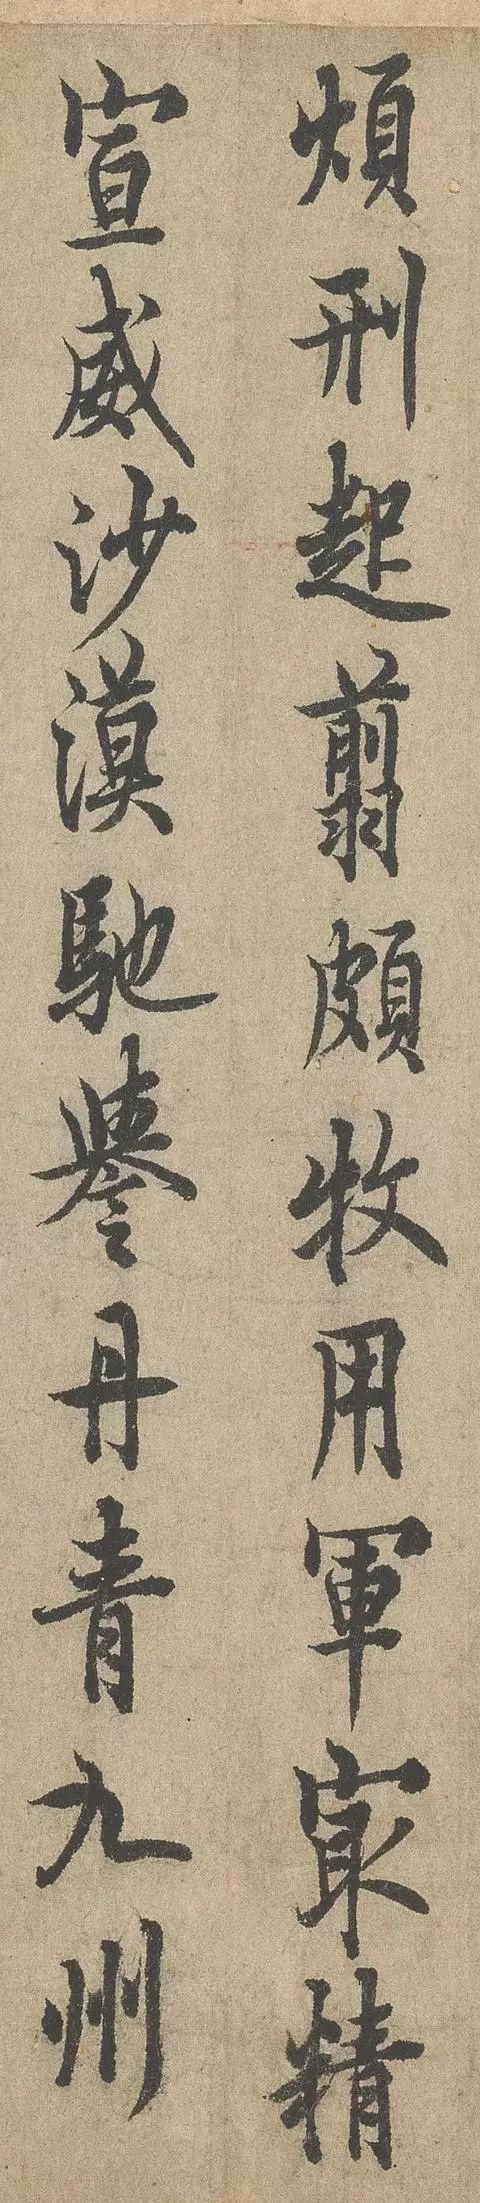 煩刑起翦頗牧用軍冣精
宣威沙漠馳譽丹青九州